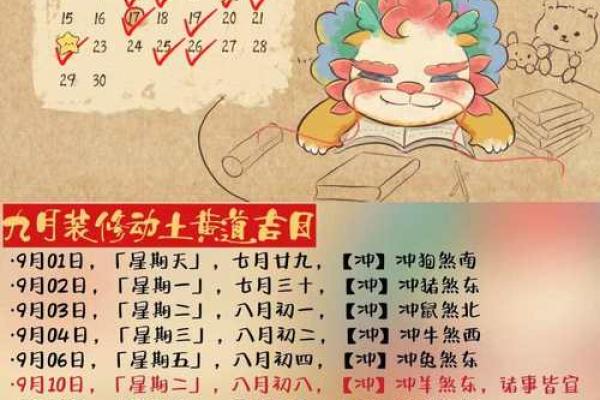 15 16 17 18 19 20 21
23 24 25 26 27 28
29 30
九月装修动土黄道吉日
·9月01日，「星期天」，七月廿九，【冲】冲狗煞南
·9月02日，「星期一」，七月三十，【冲】冲猪煞东
·9月03日，「星期二」，八月初一，【冲】冲鼠煞北
·9月04日，「星期三」，八月初二，【冲】冲牛煞西
·9月06日，「星期五」，八月初四，【冲】冲兔煞东
·9月10日，「星期二」，八月初八，【冲】冲羊煞东，诸事皆宜